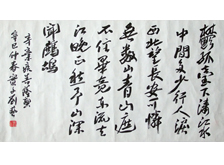 鬱孤台下清江水
中間多少行人淚
西北望長安可憐
無數山青山遮
不住畢竟東流去
江晚正愁予山深
聞鷓鴣
辛棄疾菩薩蠻
辛巳仲春